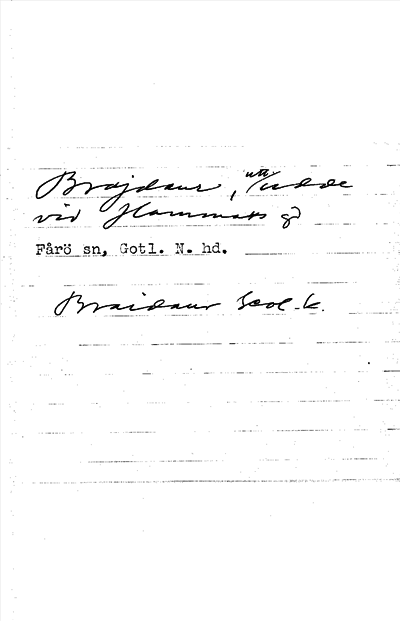 Brajdaur, udde
vid Hammars gd
Fårö sn, Gotl. N. hd.
Braidaur Geol. k.